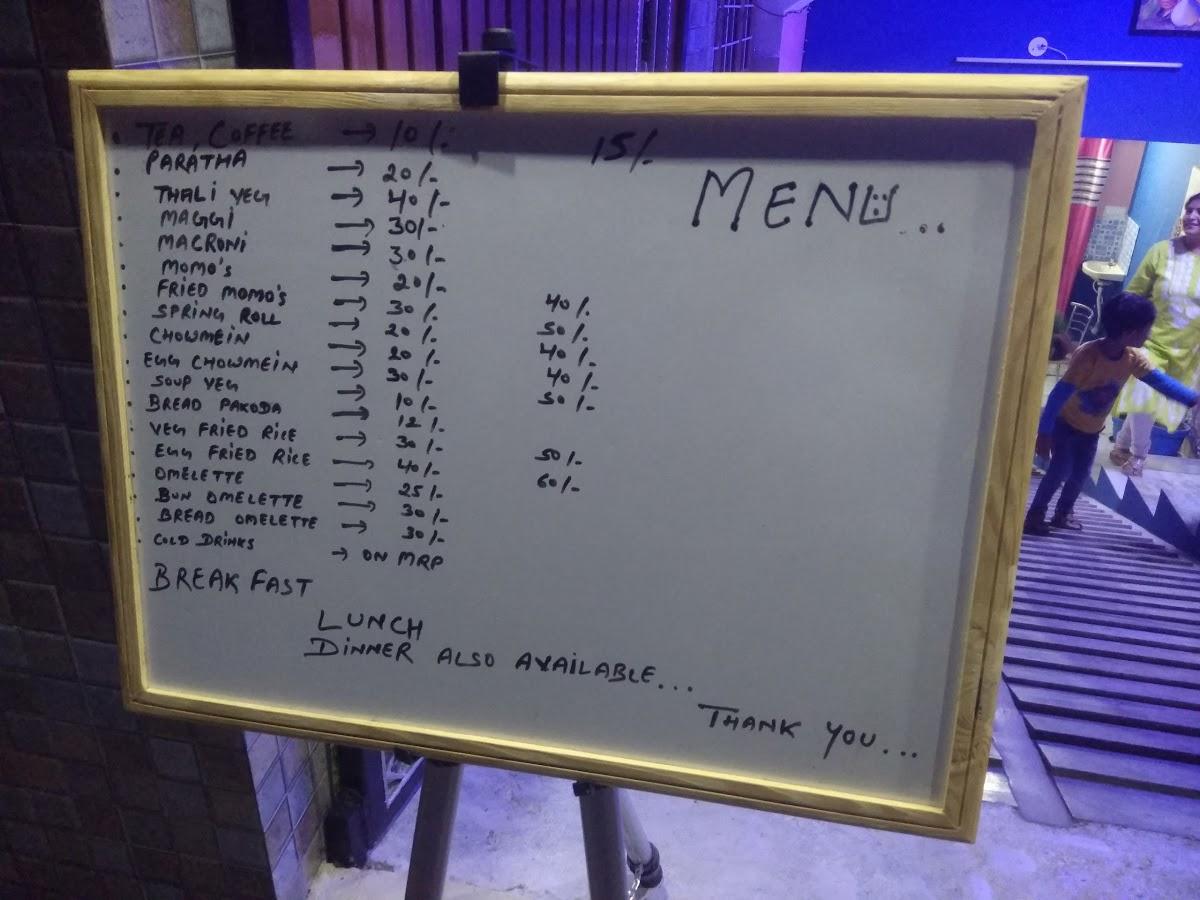 TEA, COFFEE → 10/- 15/-
MENU...
PARATHA → 20/-
THALI VEG → 40/-
MAGGI → 30/-
MACRONI → 30/-
MOMO'S → 20/- 40/-
FRIED MOMO'S → 30/- 50/-
SPRING ROLL → 20/- 40/-
CHOWMEIN → 20/- 40/-
EGG CHOWMEIN → 30/- 50/-
SOUP VEG → 10/-
BREAD PAKODA → 12/-
VEG FRIED RICE → 30/- 50/-
EGG FRIED RICE → 40/- 60/-
OMELETTE → 25/-
BUN OMELETTE → 30/-
BREAD OMELETTE → 30/-
COLD DRINKS → ON MRP
BREAKFAST
LUNCH
DINNER ALSO AVAILABLE...
THANK YOU...